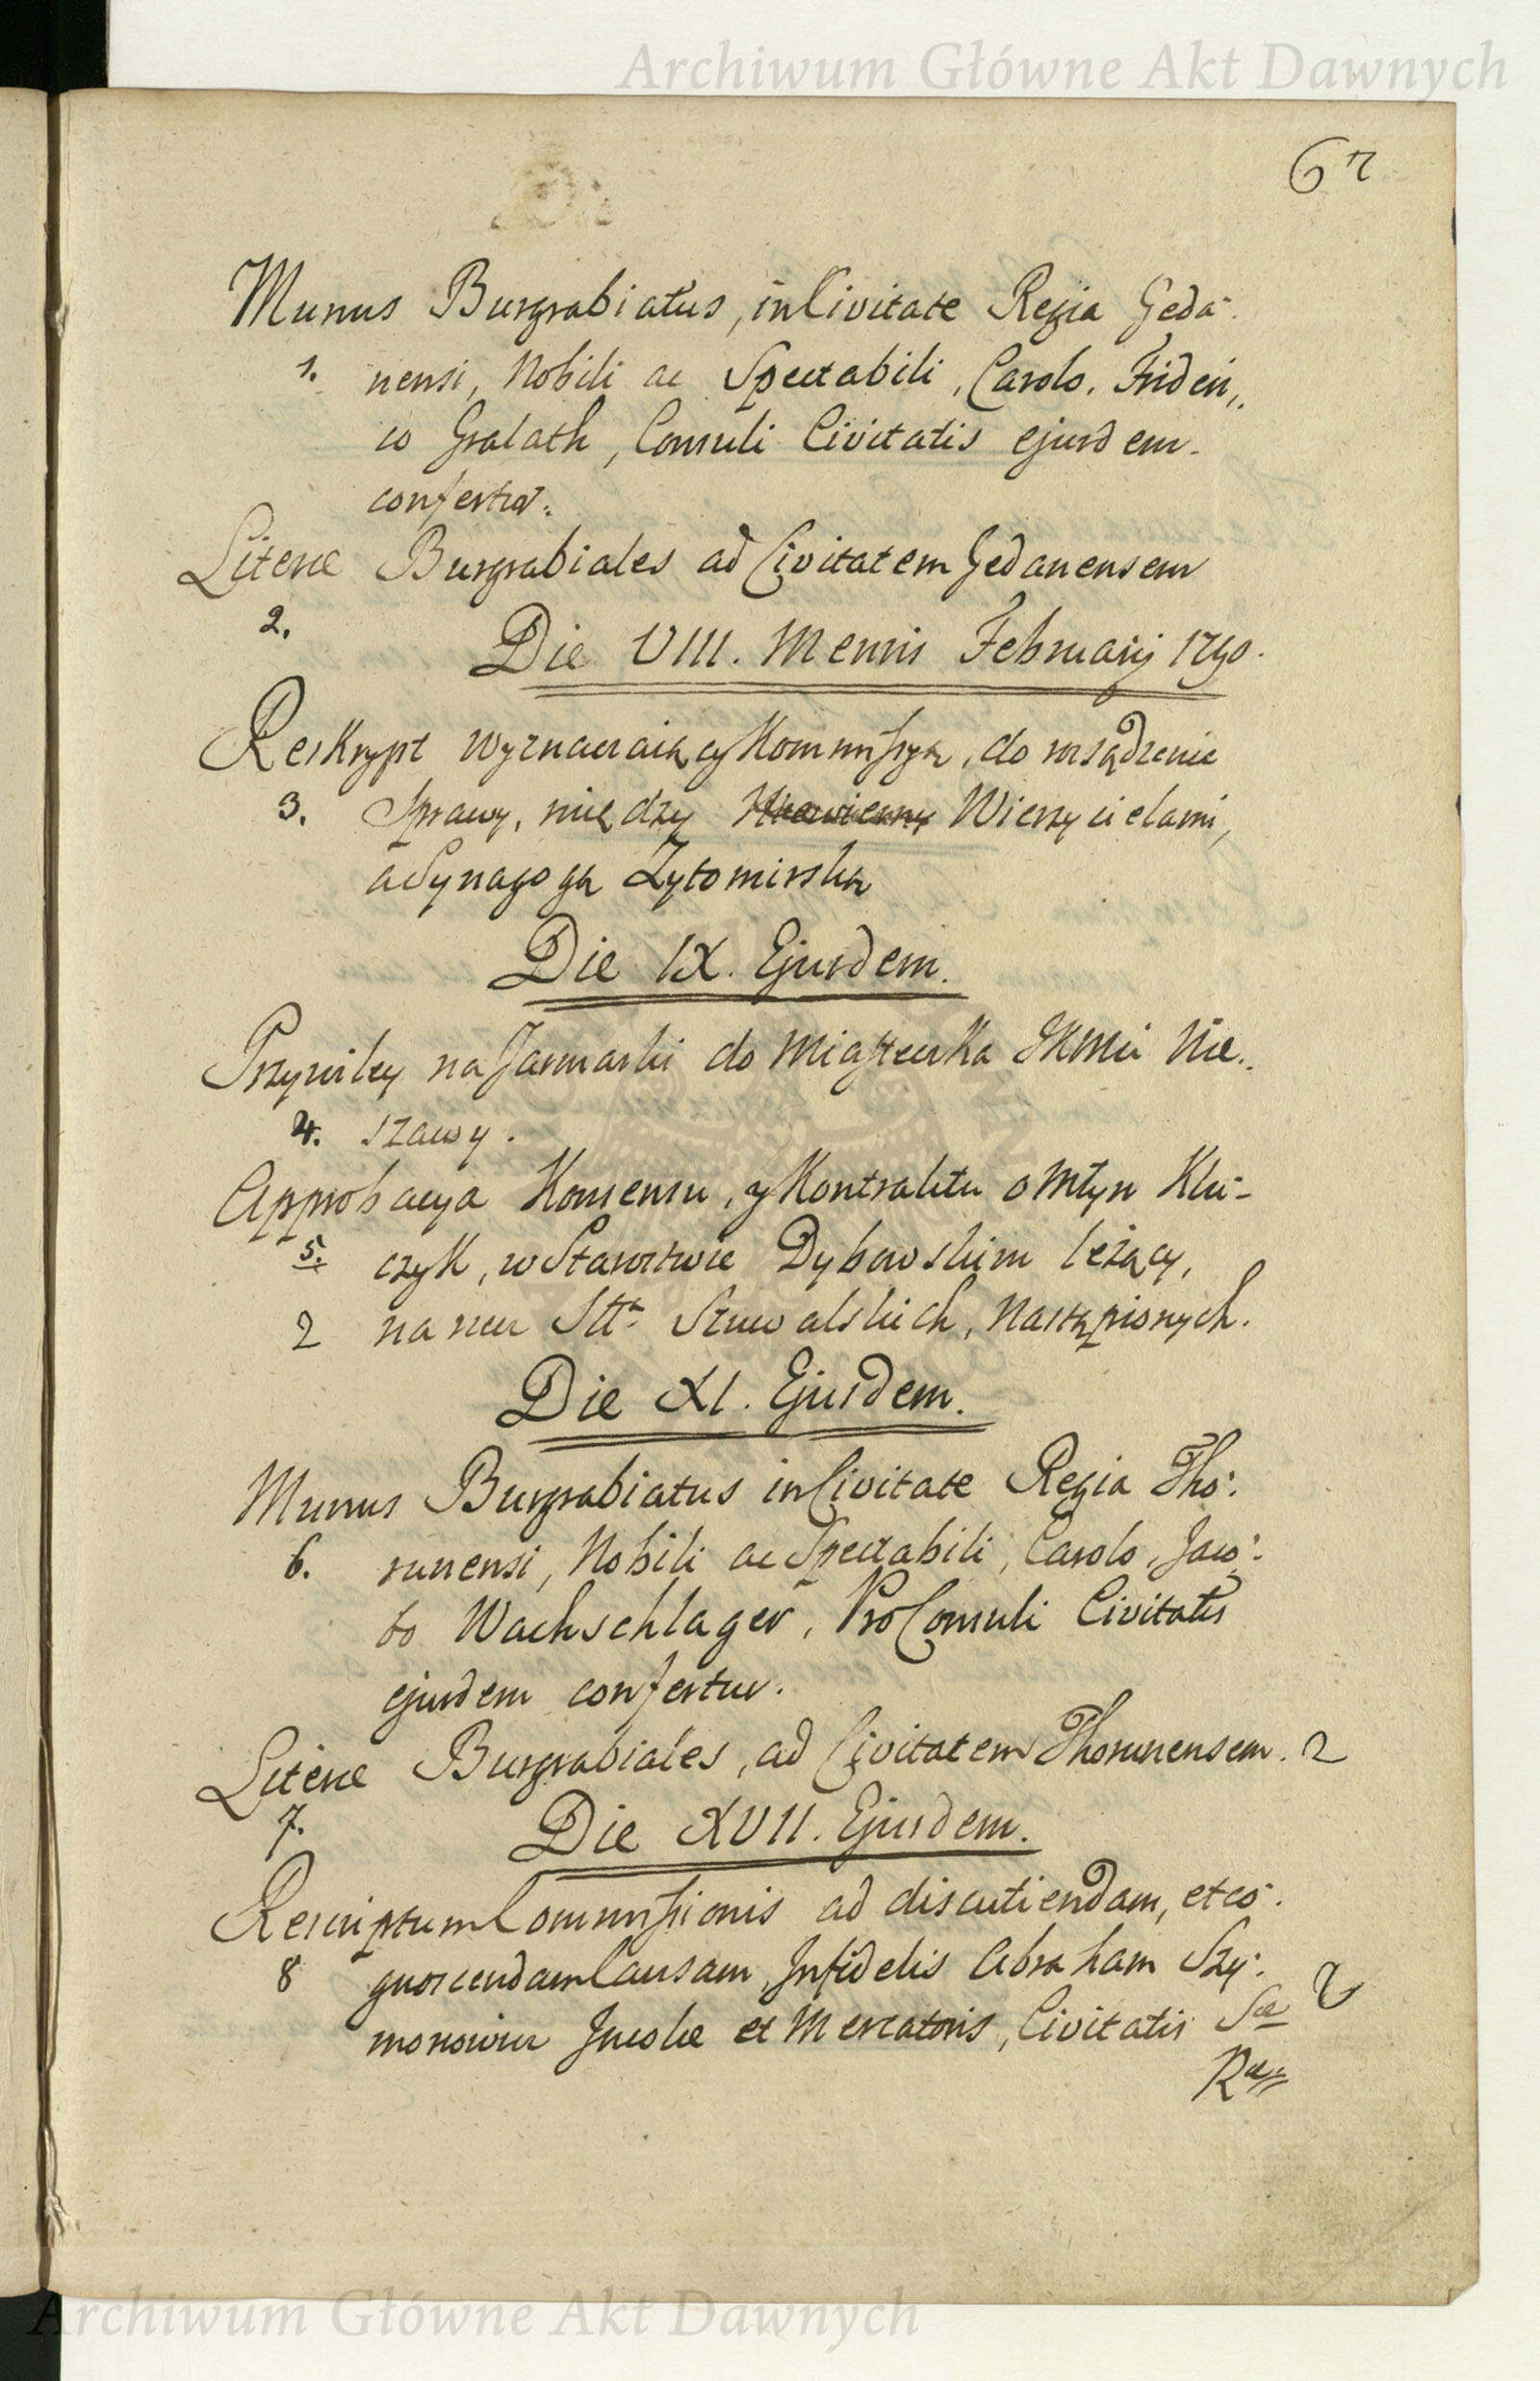 Archiwum Główne Akt Dawnych
67
Munus Burgrabiatus, in Civitate Regia Geda-
1. nensi, Nobili ac Spectabili, Carolo, Frideri,,
co Gralath, Consuli Civitatis ejusdem
confertur.
Literæ Burgrabiales ad Civitatem Gedanensem
2.
Die VIII. Mensis Februarij 1790.
Reskrypt wyznaczaiący Kommissyą, do rozsądzenia
3. Sprawy, między Wierzycielami,
a Synagogą Zytomirską
Die IX. Ejusdem.
Przywiley na Jarmarki do Miasteczka JKMci Nie-
4. szawy.
Approbacya Konsensu, y Kontraktu o Młyn Klu-
5. czyk, w Starostwie Dybowskim leżący,
2 na rzecz Szuwalskich, nastąpionych.
Die XI. Ejusdem.
Munus Burgrabiatus in Civitate Regia Tho-
6. runensi, Nobili ac Spectabili, Carolo, Jaco-
bo Wachschlager, ProConsuli Civitatis
ejusdem confertur.
Literæ Burgrabiales, ad Civitatem Thorunensem. 2
7.
Die XVII. Ejusdem.
Rescriptum Commissionis ad discutiendam, et co-
8 gnoscendam Causam, Infidelis Abraham Szy-
monowicz Incolæ et Mercatoris, Civitatis Sæ
Ræ
Archiwum Główne Akt Dawnych